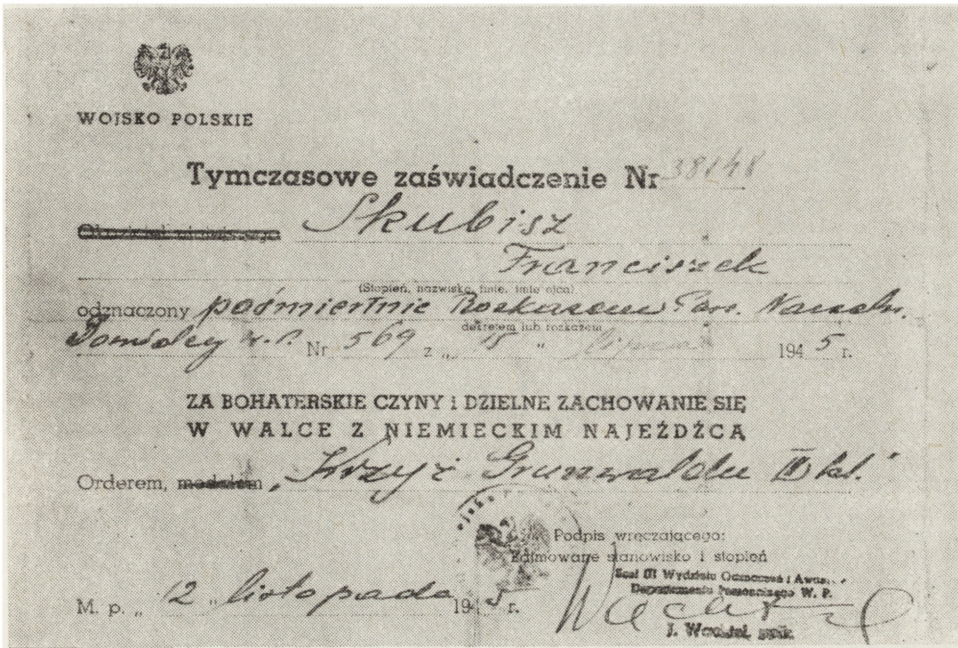 WOJSKO POLSKIE
Tymczasowe zaświadczenie Nr 38148
Skubisz
Franciszek
(Stopień, nazwisko, imię, imię ojca)
odznaczony pośmiertnie Rozkazem Naczeln.
dekretem lub rozkazem
W.P. Nr 569 z „ 15 " lipca 1945 r.
ZA BOHATERSKIE CZYNY i DZIELNE ZACHOWANIE SIĘ
W WALCE Z NIEMIECKIM NAJEŹDŹCĄ
Orderem, medalem „Krzyż Grunwaldu III kl."
Podpis wręczającego:
Zajmowane stanowisko i stopień
Szef III Wydziału Odznaczeń i
Departamentu Personalnego W. P.
M. p. „ 12 " listopada 1945 r.
J.